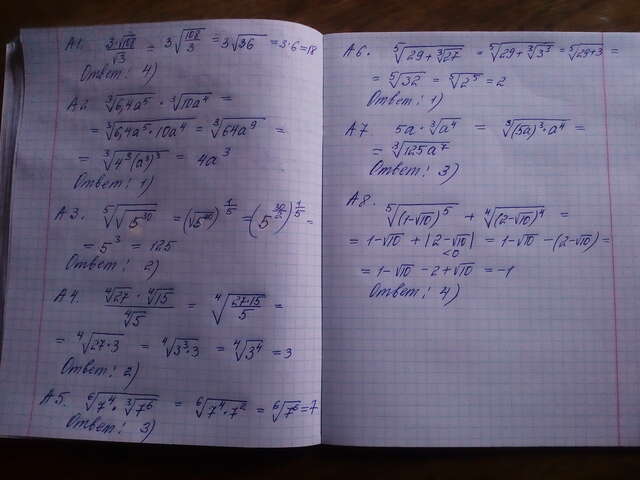 А1. 3·√108/√3 = 3√(108/3) = 3√36 = 3·6 = 18
Ответ: 4)
А2. ∛(6,4a⁵) · ∛(10a⁴) =
= ∛(6,4a⁵·10a⁴) = ∛(64a⁹) =
= ∛(4³(a³)³) = 4a³
Ответ: 1)
А3. ⁵√(√(5³⁰)) = (√5³⁰)^(1/5) = (5^(30/2))^(1/5) =
= 5³ = 125
Ответ: 2)
А4. (⁴√27 · ⁴√15)/⁴√5 = ⁴√(27·15/5) =
= ⁴√(27·3) = ⁴√(3³·3) = ⁴√(3⁴) = 3
Ответ: 2)
А5. ⁶√(7⁴·∛(7⁶)) = ⁶√(7⁴·7²) = ⁶√(7⁶) = 7
Ответ: 3)
А6. ⁵√(29+∛27) = ⁵√(29+∛(3³)) = ⁵√(29+3) =
= ⁵√32 = ⁵√(2⁵) = 2
Ответ: 1)
А7 5a·∛(a⁴) = ∛((5a)³·a⁴) =
= ∛(125a⁷)
Ответ: 3)
А8. ⁵√((1-√10)⁵) + ⁴√((2-√10)⁴) =
= 1-√10 + |2-√10| = 1-√10 -(2-√10) =
<0
= 1-√10 -2+√10 = -1
Ответ: 4)